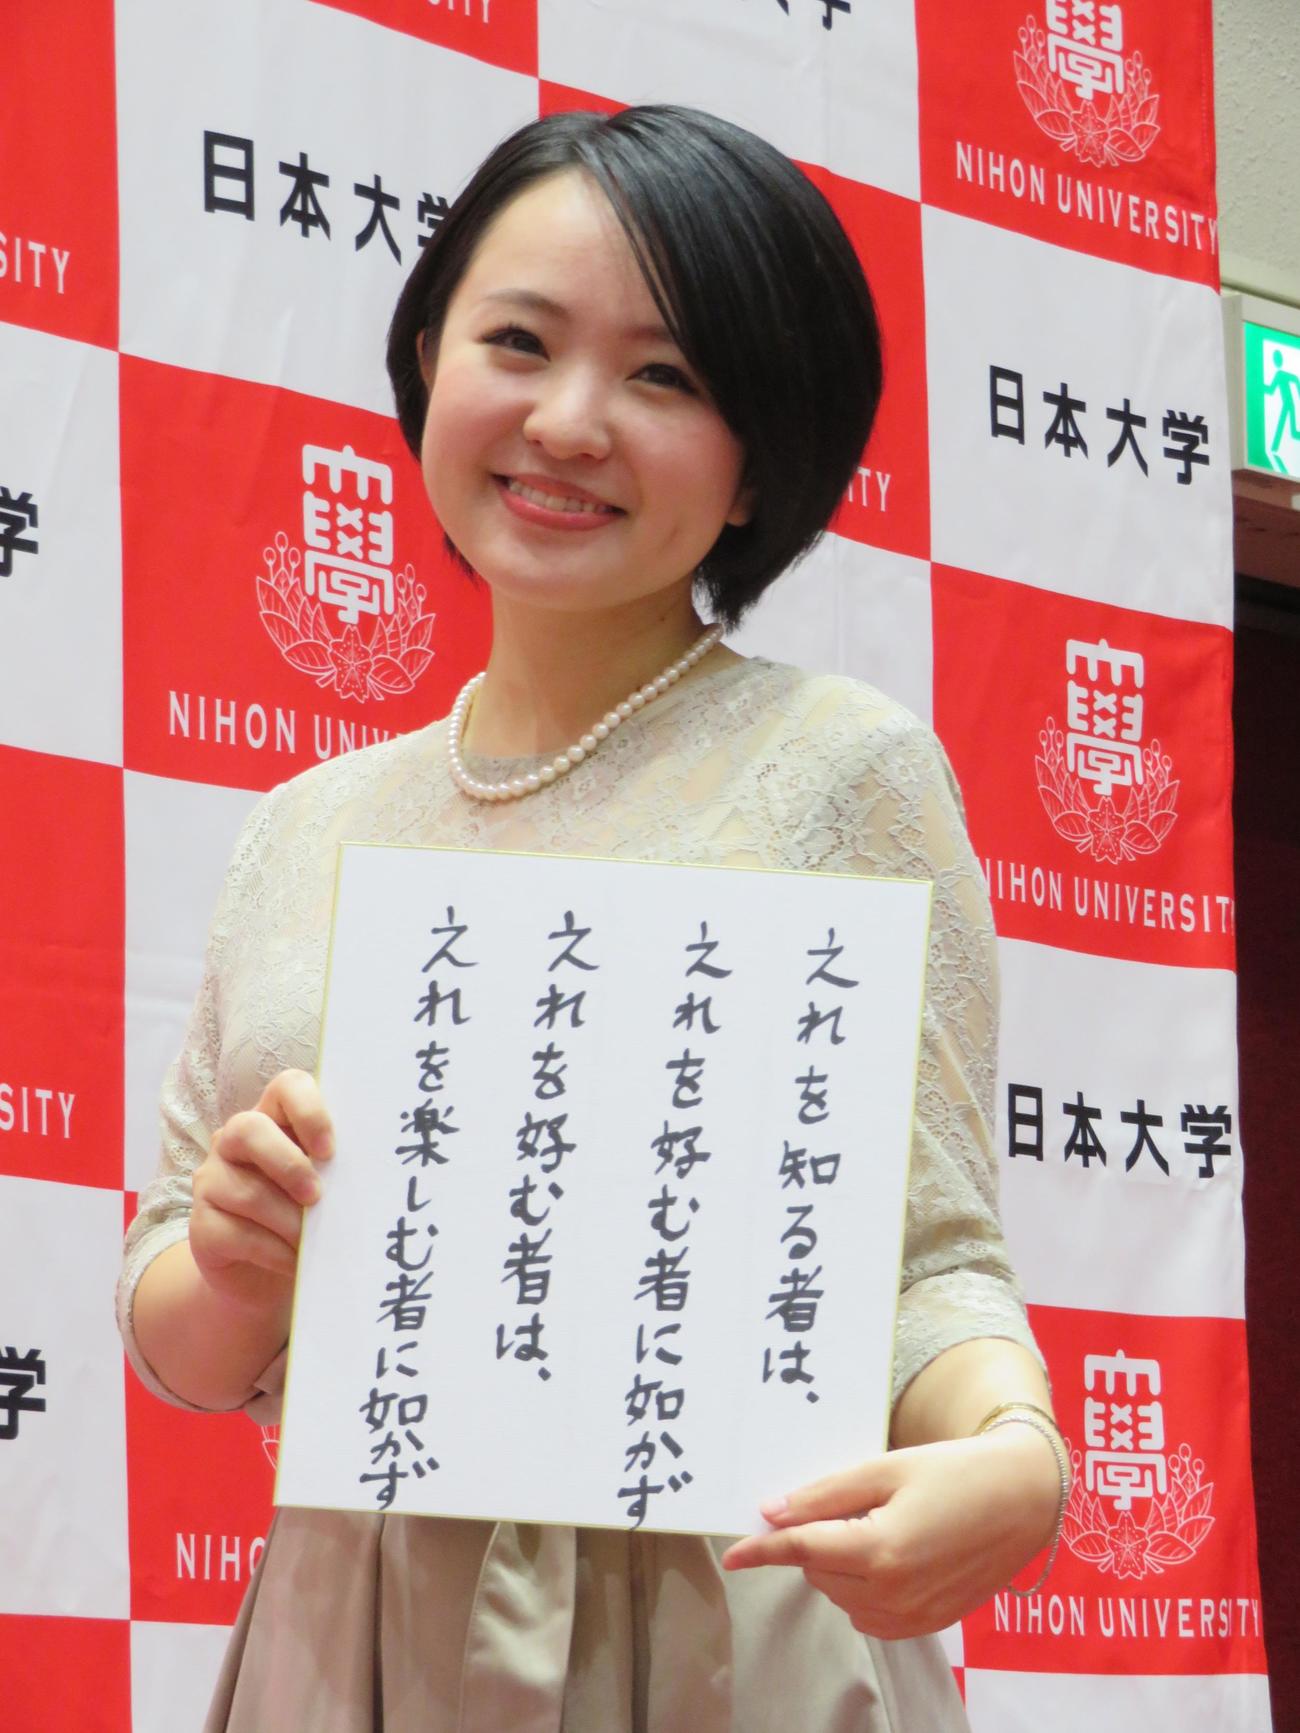 學
NIHON UNIVERSITY
日本大学
SITY
日本大学
學
NIHON UNIV
SITY
學
NIHON UNIVERSITY
学
日本大学
SITY
之れを知る者は、
之れを好む者に如かず
之れを好む者は、
之れを楽しむ者に如かず
学
學
NIHO
NIHON UNIVERSITY